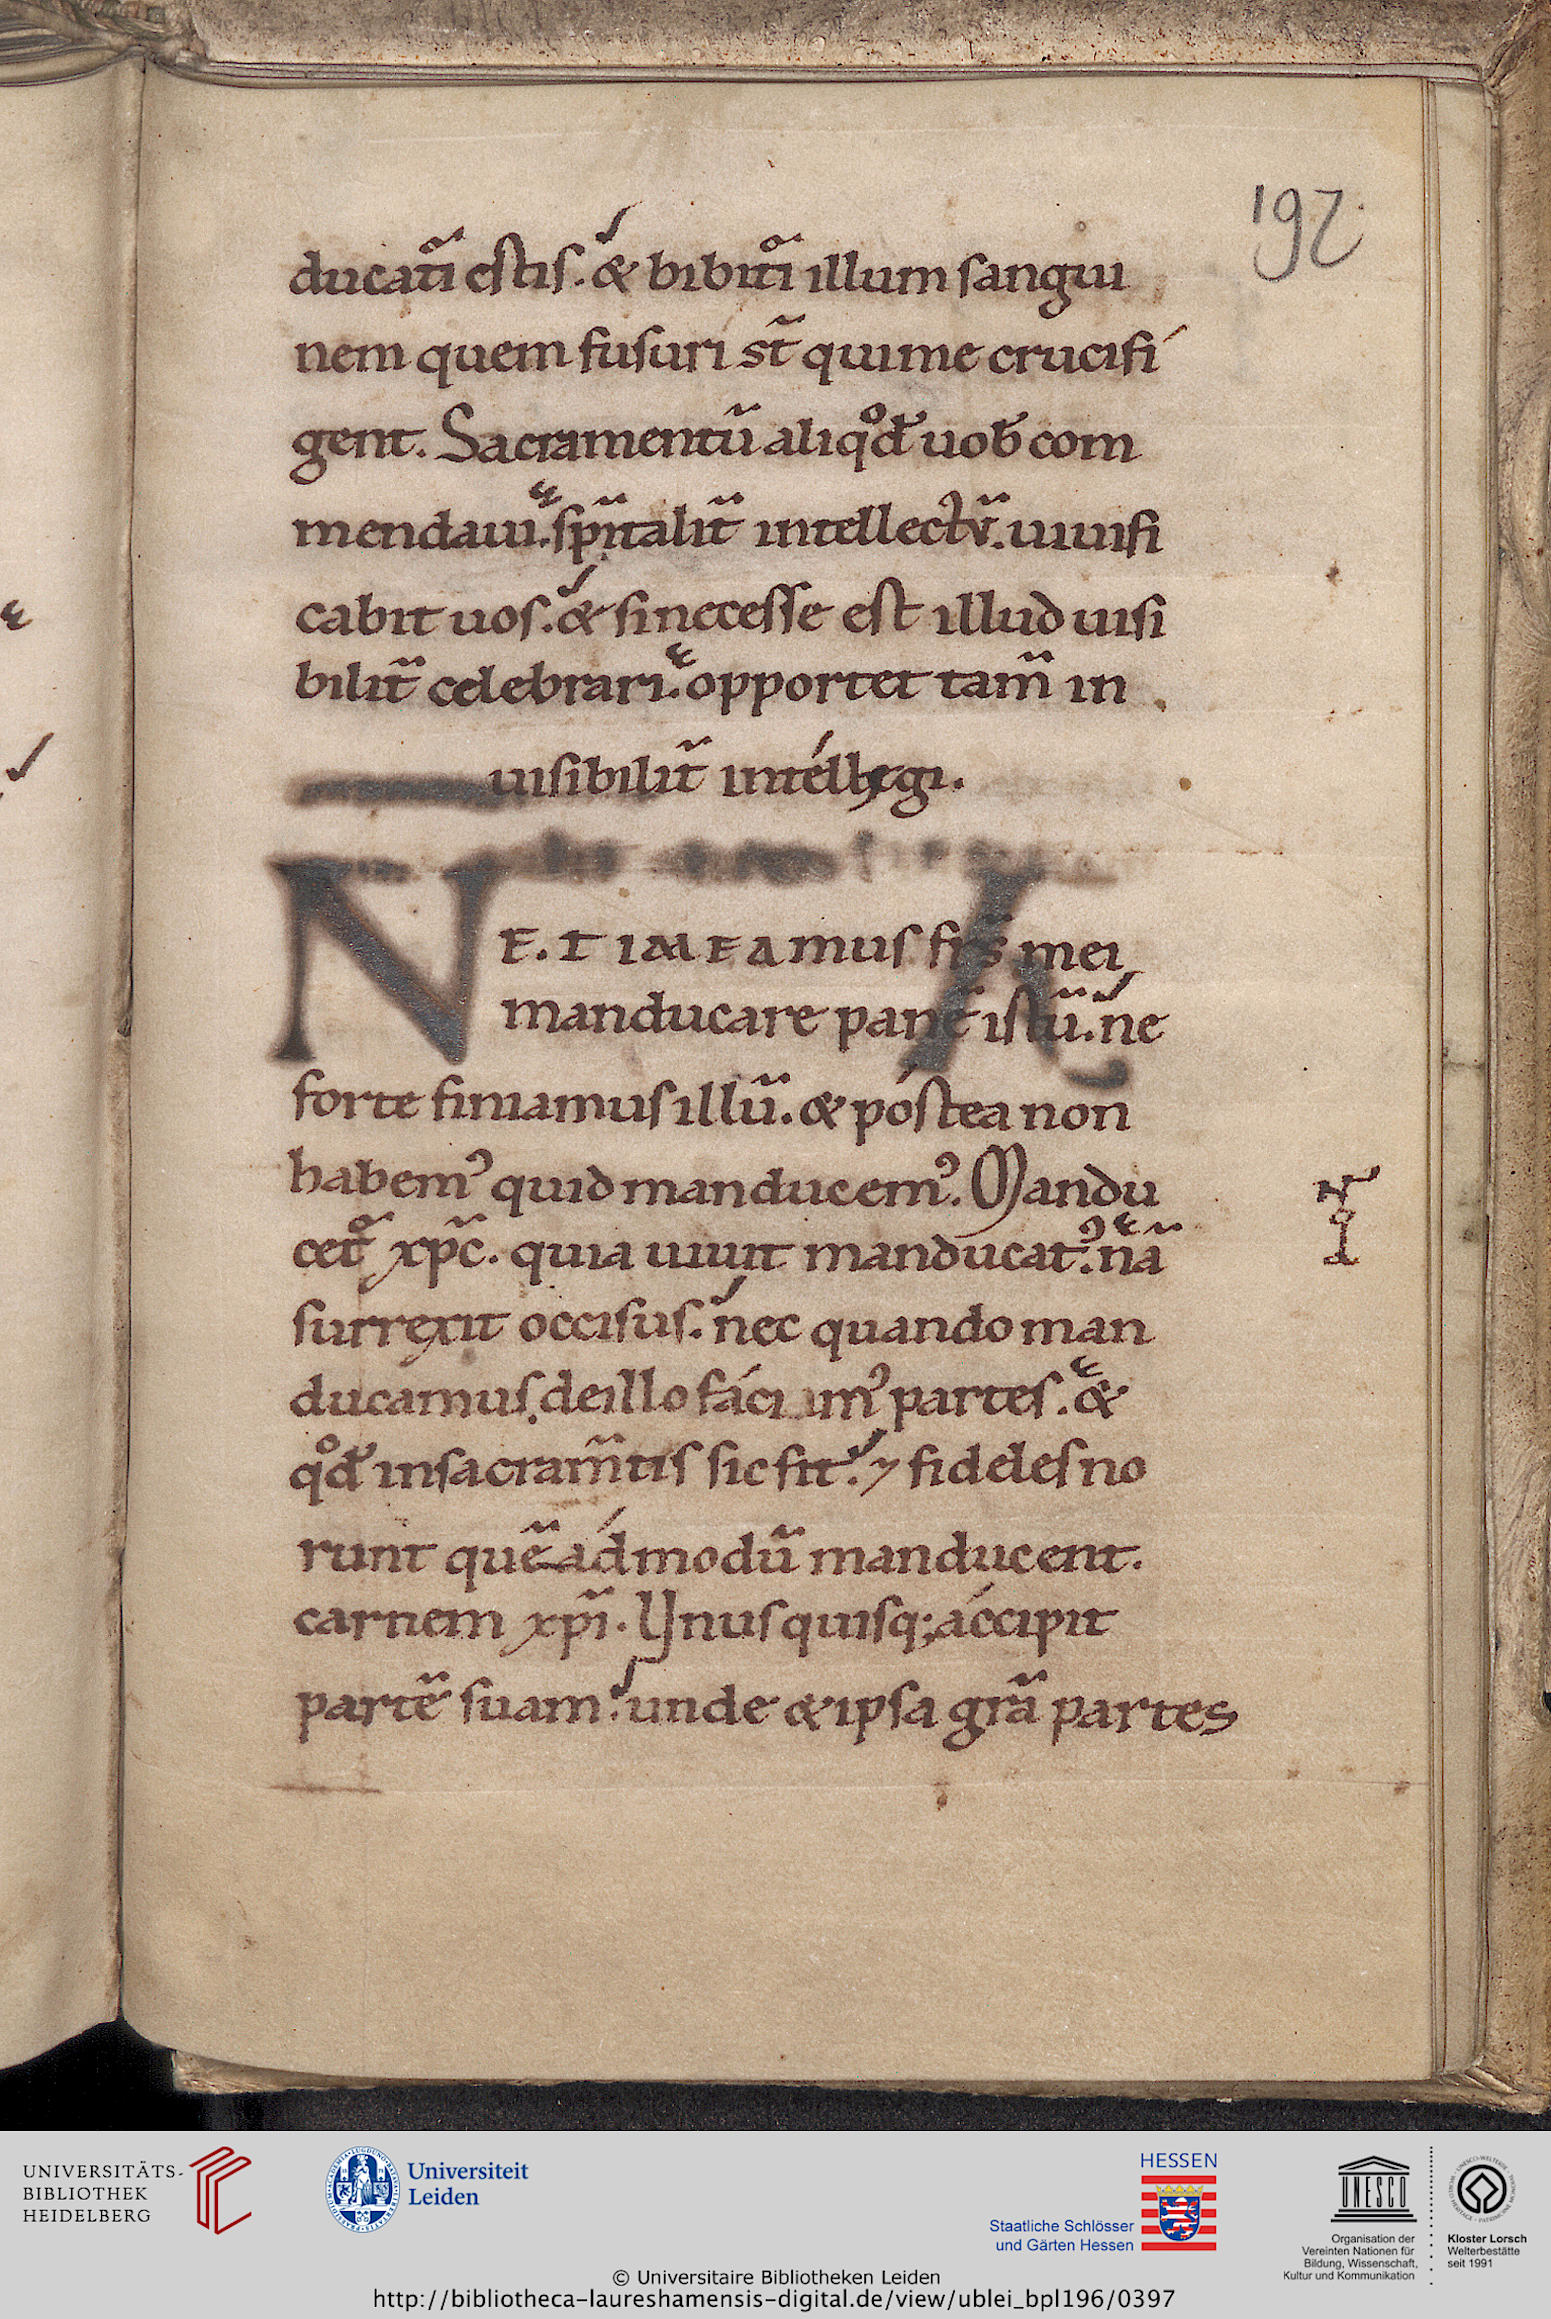 192
ducati᷒ estis. & bibiti᷒ illum sangui
nem quem fusuri st̃ qui me crucifi
gent. Sacramentũ aliqͦd uob̄ com
mendaui. sp̃italit̃ intellectũ. uiuifi
cabit uos. & si necesse est illud uisi
bilit̃ celebrari. opportet tam̃ in
uisibilit̃ intéllegi.
NE. TIMEAmus fr̃s mei
manducare panẽ istũ. ne
forte finiamus illũ. & póstea non
habemꝰ quid manducemꝰ. Mandu
cet᷒ xp̃c. quia uiuit manducatꝰ. nã
surrexit occisus. nec quando man
ducamus, de illo fácimꝰ partes. &
qͦd in sacram̃tis sic fit. ⁊ fideles no
runt quẽ ádmodũ manducent.
carnem xp̃i. Unus quisq; áccipit
partẽ suam. unde & ipsa gr̃a partes
UNIVERSITÄTS-
BIBLIOTHEK
HEIDELBERG
Universiteit
Leiden
HESSEN
Staatliche Schlösser
und Gärten Hessen
UNESCO
Organisation der
Vereinten Nationen für
Bildung, Wissenschaft,
Kultur und Kommunikation
Kloster Lorsch
Welterbestätte
seit 1991
© Universitaire Bibliotheken Leiden
http://bibliotheca-laureshamensis-digital.de/view/ublei_bpl196/0397